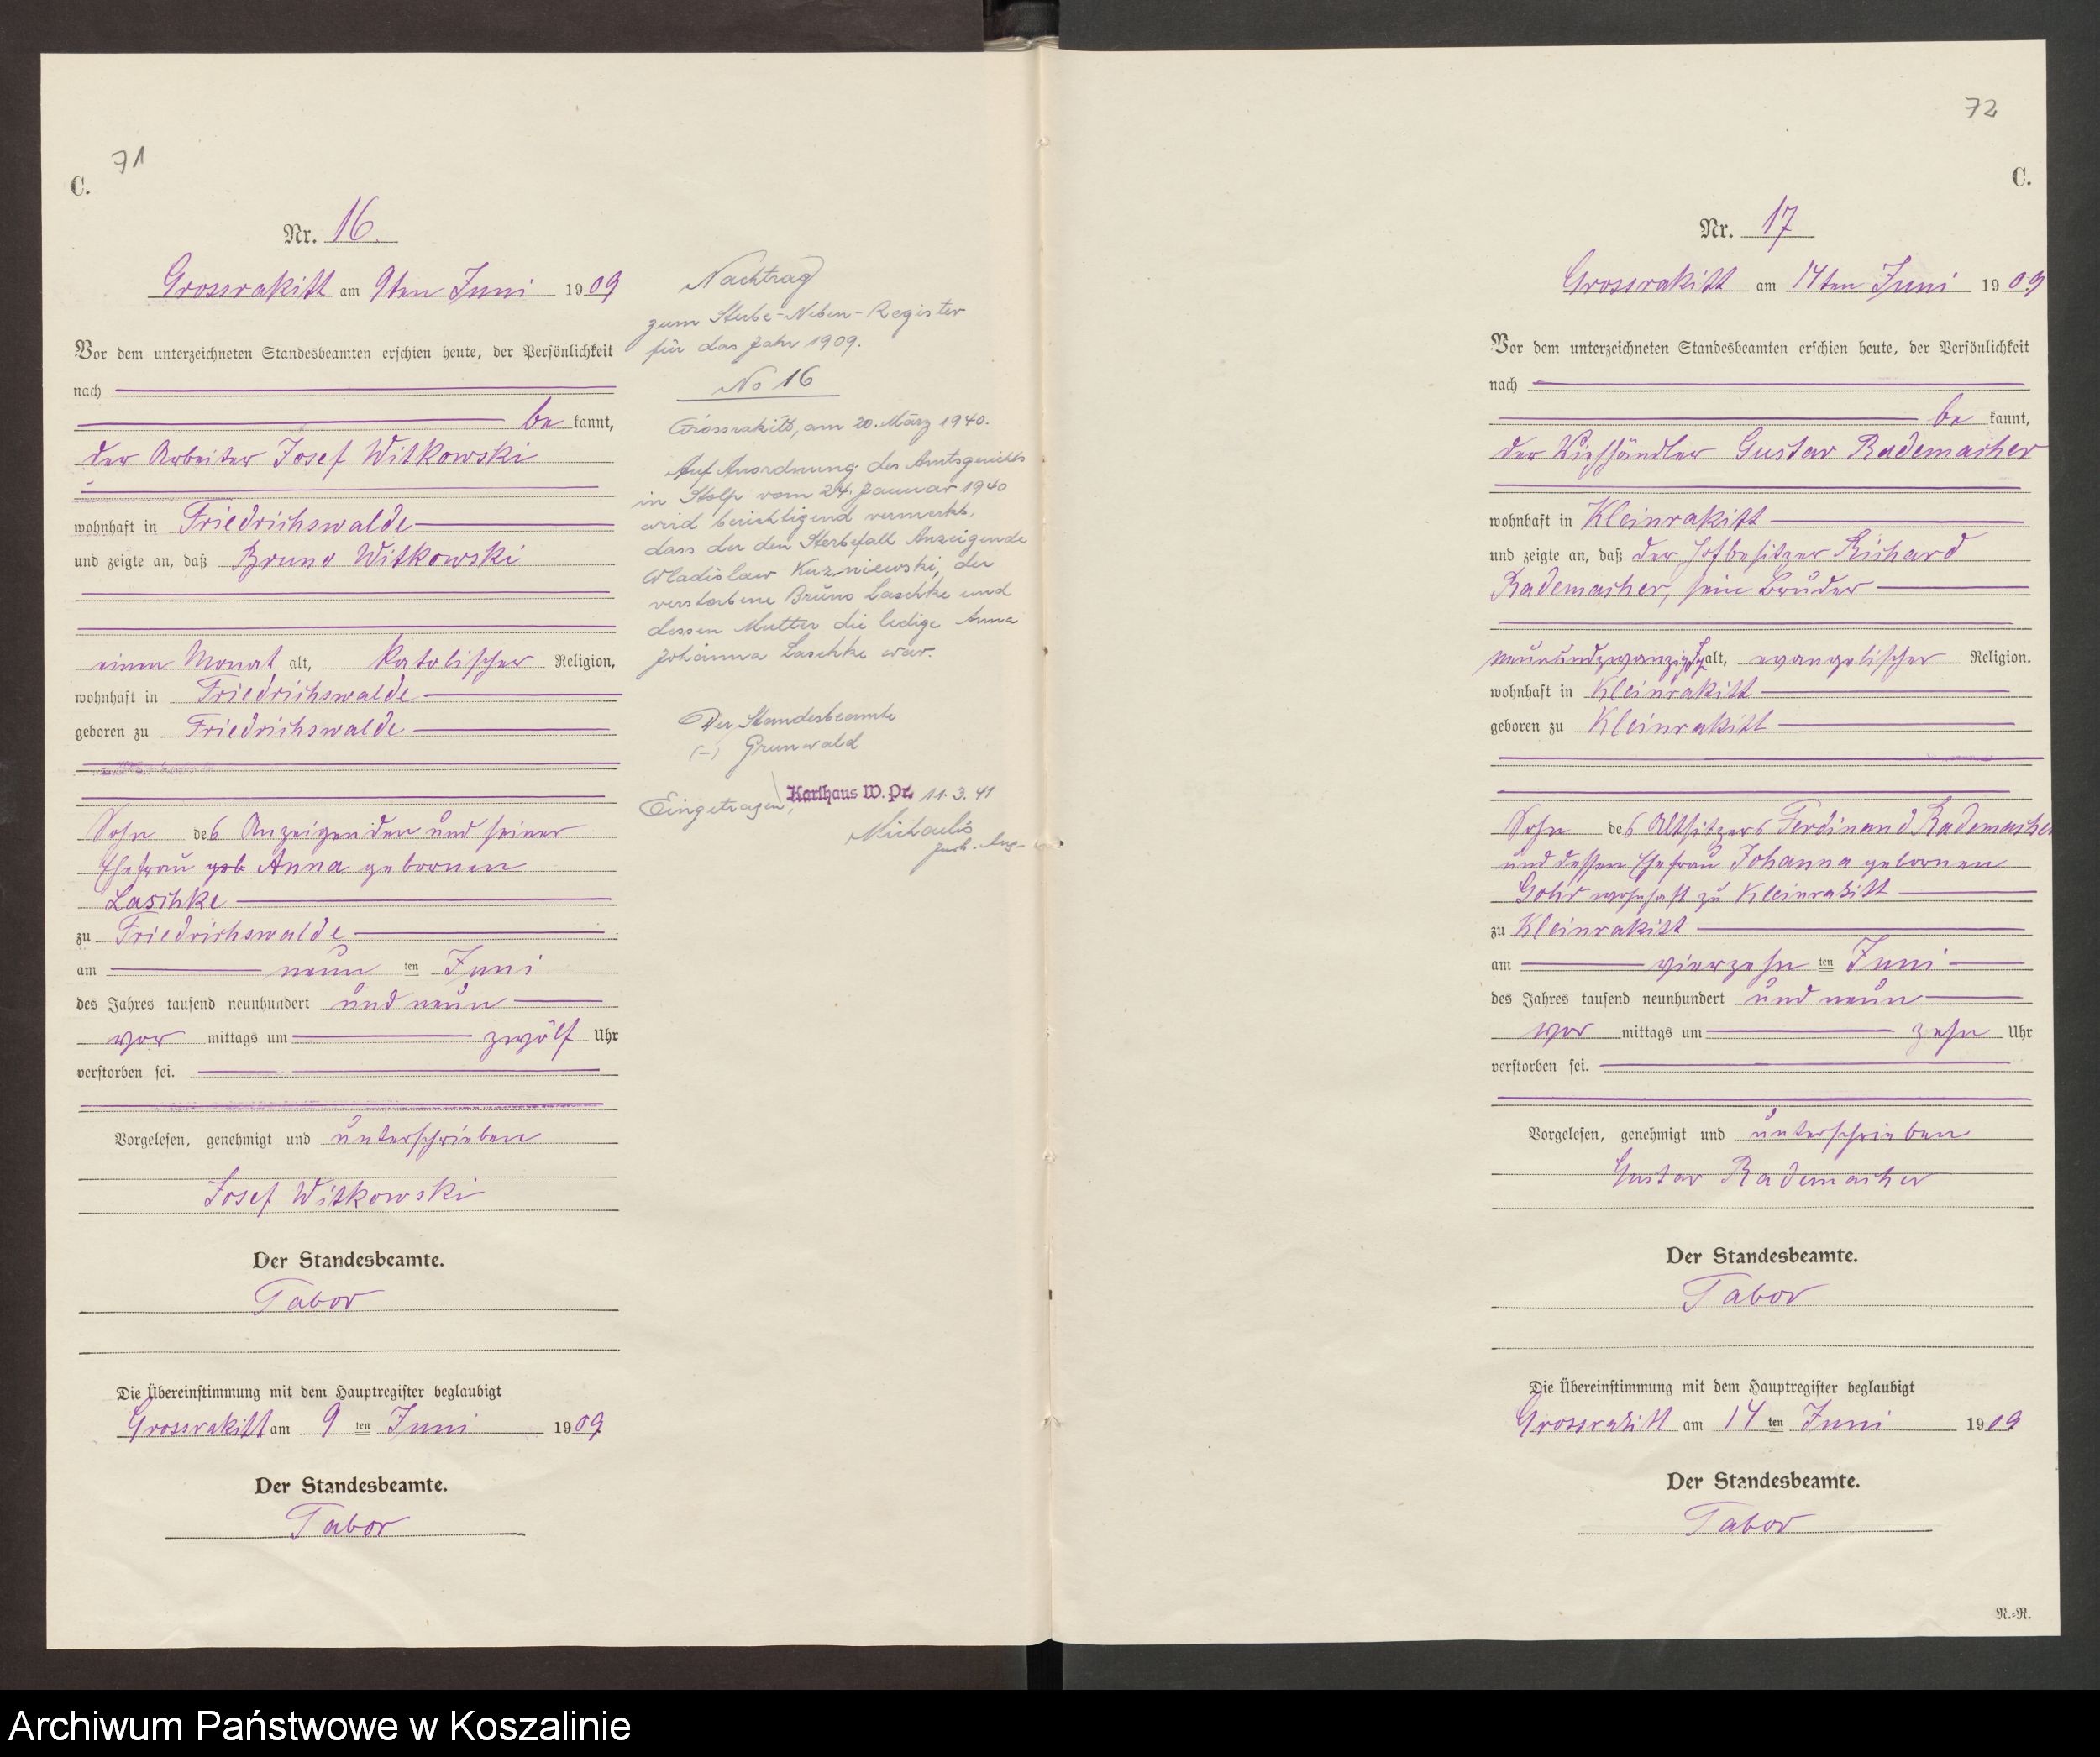 71
C.
Nr. 16.
Grossrakitt am 9ten Juni 1909
Vor dem unterzeichneten Standesbeamten erschien heute, der Persönlichkeit
nach
be kannt,
der Arbeiter Josef Witkowski
wohnhaft in Friedrichswalde
und zeigte an, daß Bruno Witkowski
einen Monat alt, katolischer Religion,
wohnhaft in Friedrichswalde
geboren zu Friedrichswalde
Sohn des Anzeigenden und seiner
Ehefrau geb Anna gebornen
Laschke
zu Friedrichswalde
am neun ten Juni
des Jahres tausend neunhundert und neun
vor mittags um zwölf Uhr
verstorben sei.
Vorgelesen, genehmigt und unterschrieben
Josef Witkowski
Der Standesbeamte.
Tabor
Die Übereinstimmung mit dem Hauptregister beglaubigt
Grossrakitt am 9 ten Juni 1909
Der Standesbeamte.
Tabor
Nachtrag
zum Sterbe-Neben-Register
für das Jahr 1909.
No 16
Grossrakitt, am 20. März 1940.
Auf Anordnung des Amtsgerichts
in Stolp vom 24. Januar 1940
wird berichtigend vermerkt,
dass der den Sterbefall Anzeigende
Wladislaw Kuzniewski, der
verstorbene Bruno Laschke und
dessen Mutter die ledige Anna
Johanna Laschke war.
Der Standesbeamte
(-) Grunwald
Eingetragen, Karthaus W. Pr. 11.3.41
Michaelis
Just. Ang-
72
C.
Nr. 17
Grossrakitt am 14ten Juni 1909
Vor dem unterzeichneten Standesbeamten erschien heute, der Persönlichkeit
nach
be kannt,
der Viehhändler Gustav Rademacher
wohnhaft in Kleinrakitt
und zeigte an, daß der Hofbesitzer Richard
Rademacher, sein Bruder
neunundzwanzig J. alt, evangelischer Religion.
wohnhaft in Kleinrakitt
geboren zu Kleinrakitt
Sohn des Altsitzers Ferdinand Rademacher
und dessen Ehefrau Johanna gebornen
Gohr wohnhaft zu Kleinrakitt
zu Kleinrakitt
am vierzehn ten Juni
des Jahres tausend neunhundert und neun
vor mittags um zehn Uhr
verstorben sei.
Vorgelesen, genehmigt und unterschrieben
Gustav Rademacher
Der Standesbeamte.
Tabor
Die Übereinstimmung mit dem Hauptregister beglaubigt
Grossrakitt am 14 ten Juni 1909
Der Standesbeamte.
Tabor
N.-R.
Archiwum Państwowe w Koszalinie